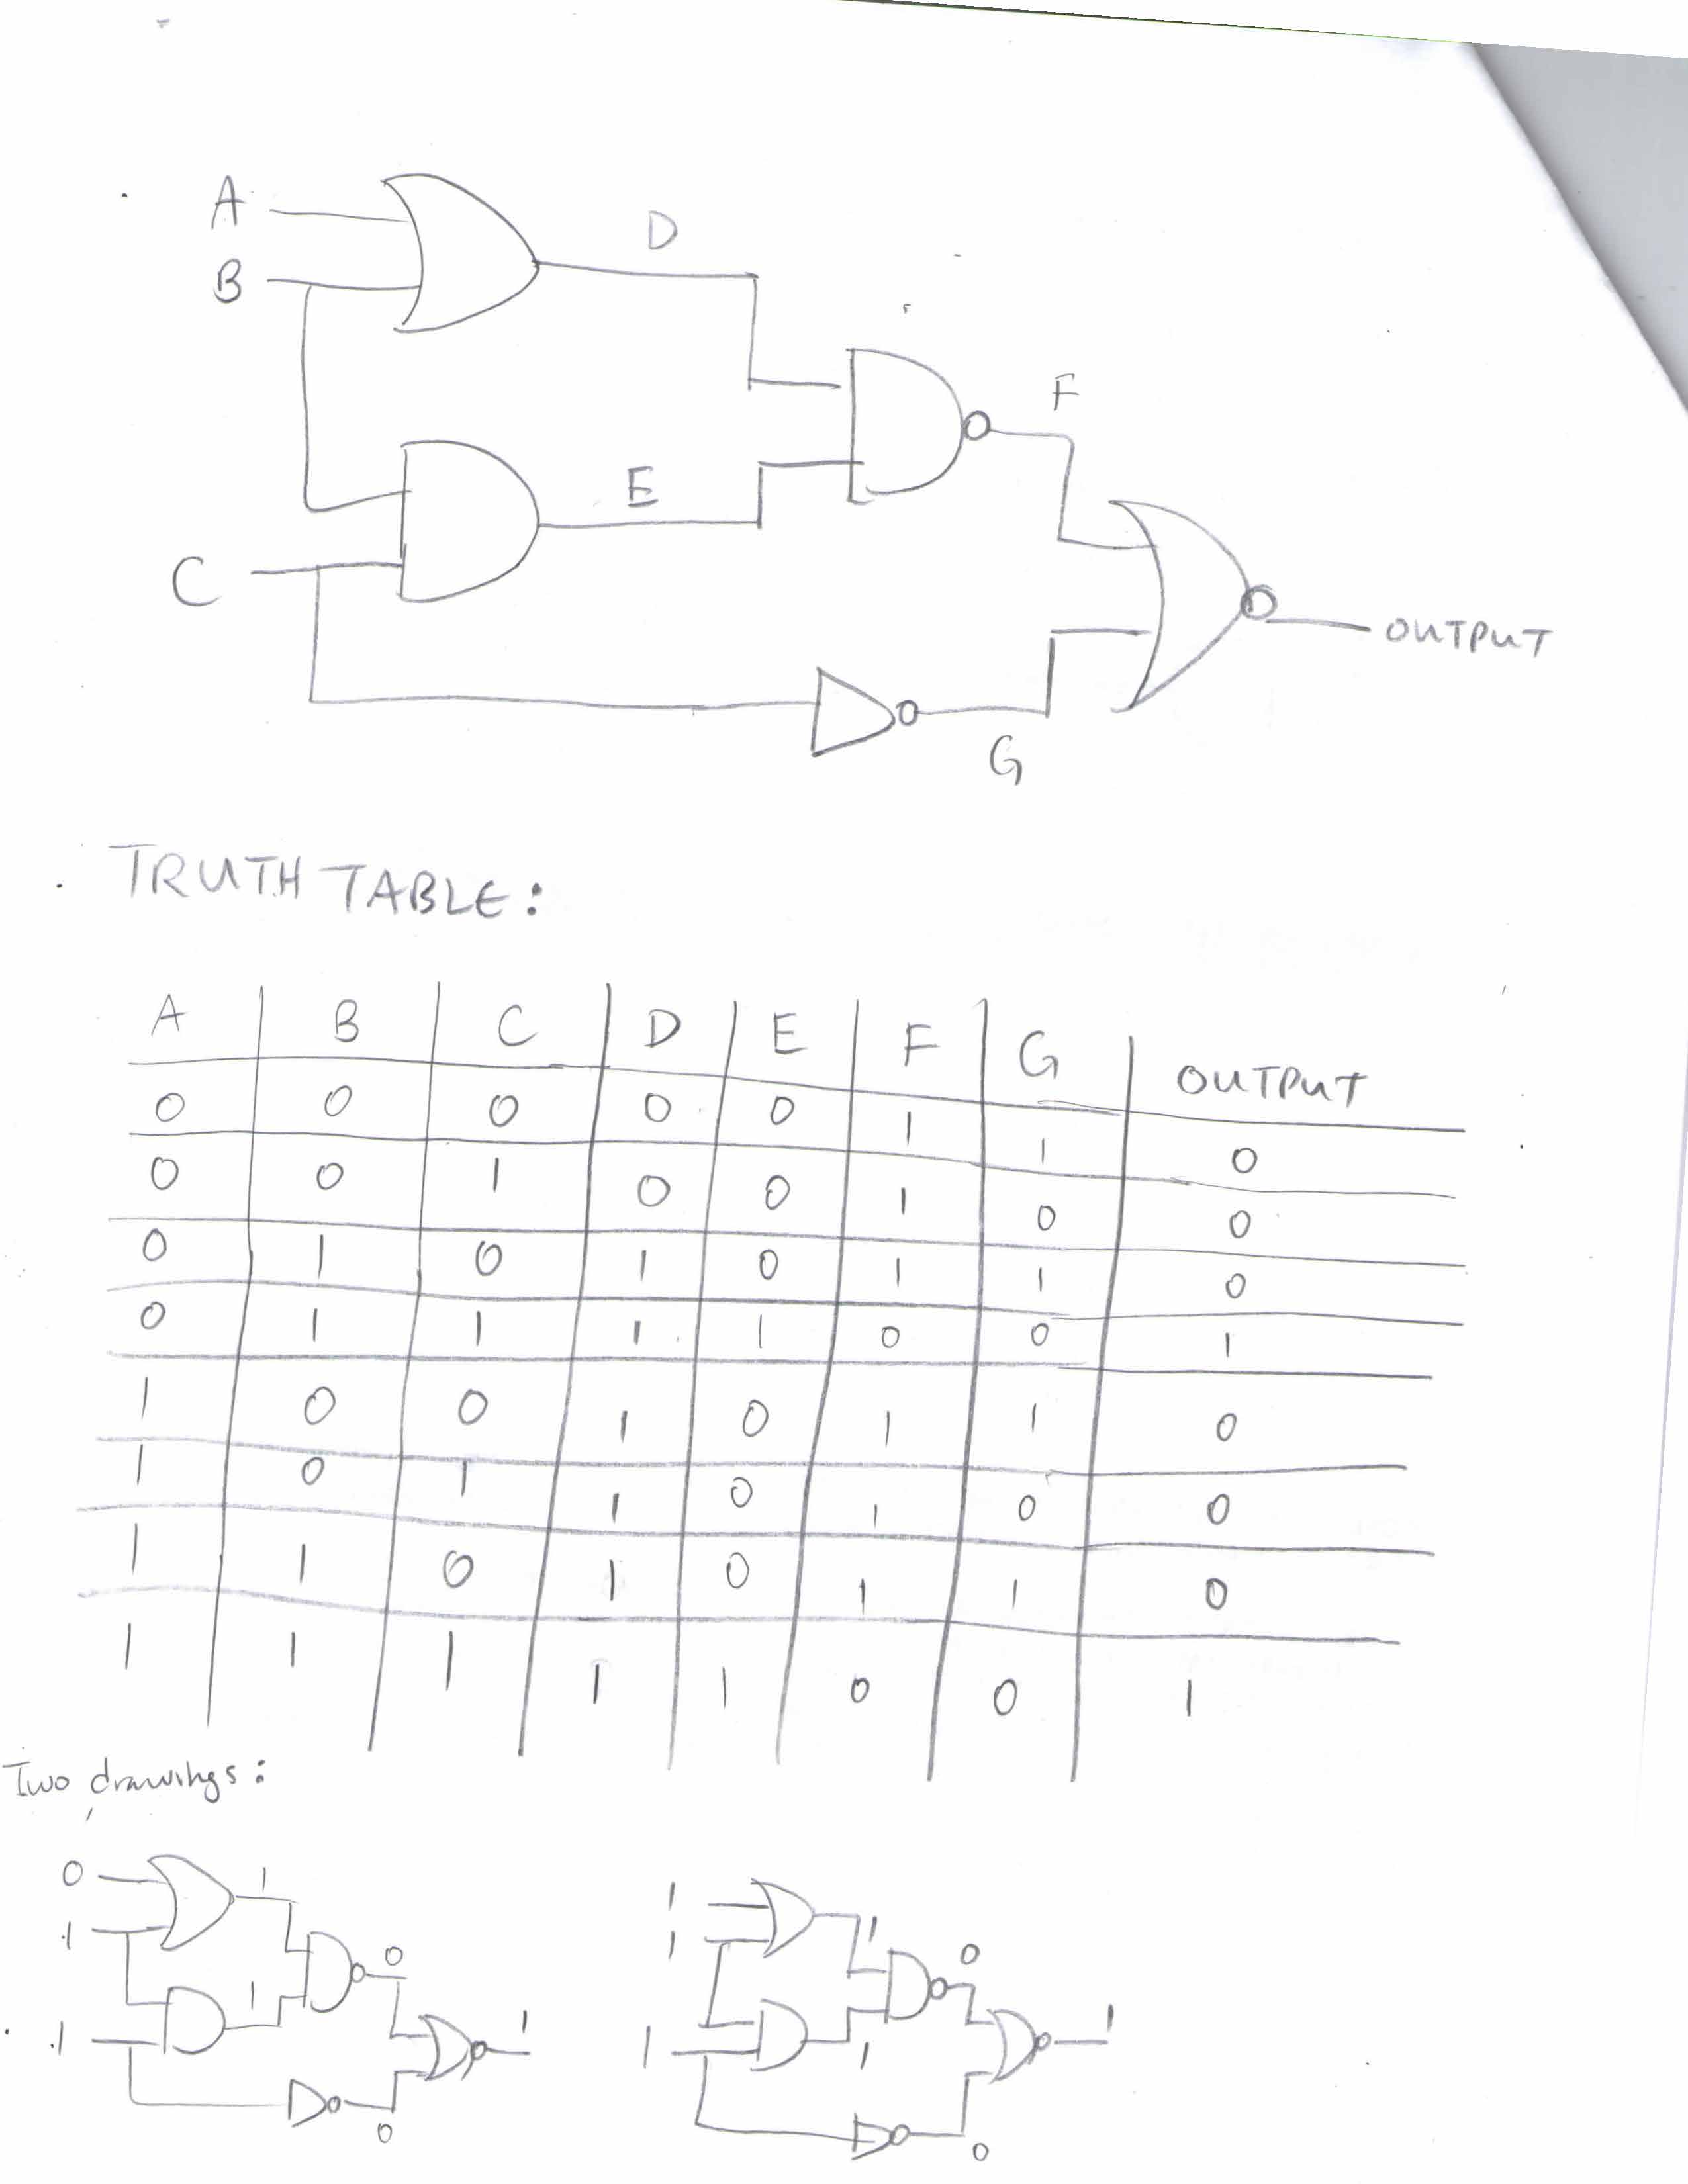 A
D
B
F
E
C
OUTPUT
G
TRUTH TABLE:
A B C D E F G OUTPUT
0 0 0 0 0 1 1 0
0 0 1 0 0 1 0 0
0 1 0 1 0 1 1 0
0 1 1 1 1 0 0 1
1 0 0 1 0 1 1 0
1 0 1 1 0 1 0 0
1 1 0 1 0 1 1 0
1 1 1 1 1 0 0 1
Two drawings:
0 1
1 0
1
1 1
0
1 1
1 0
1 1
1
0